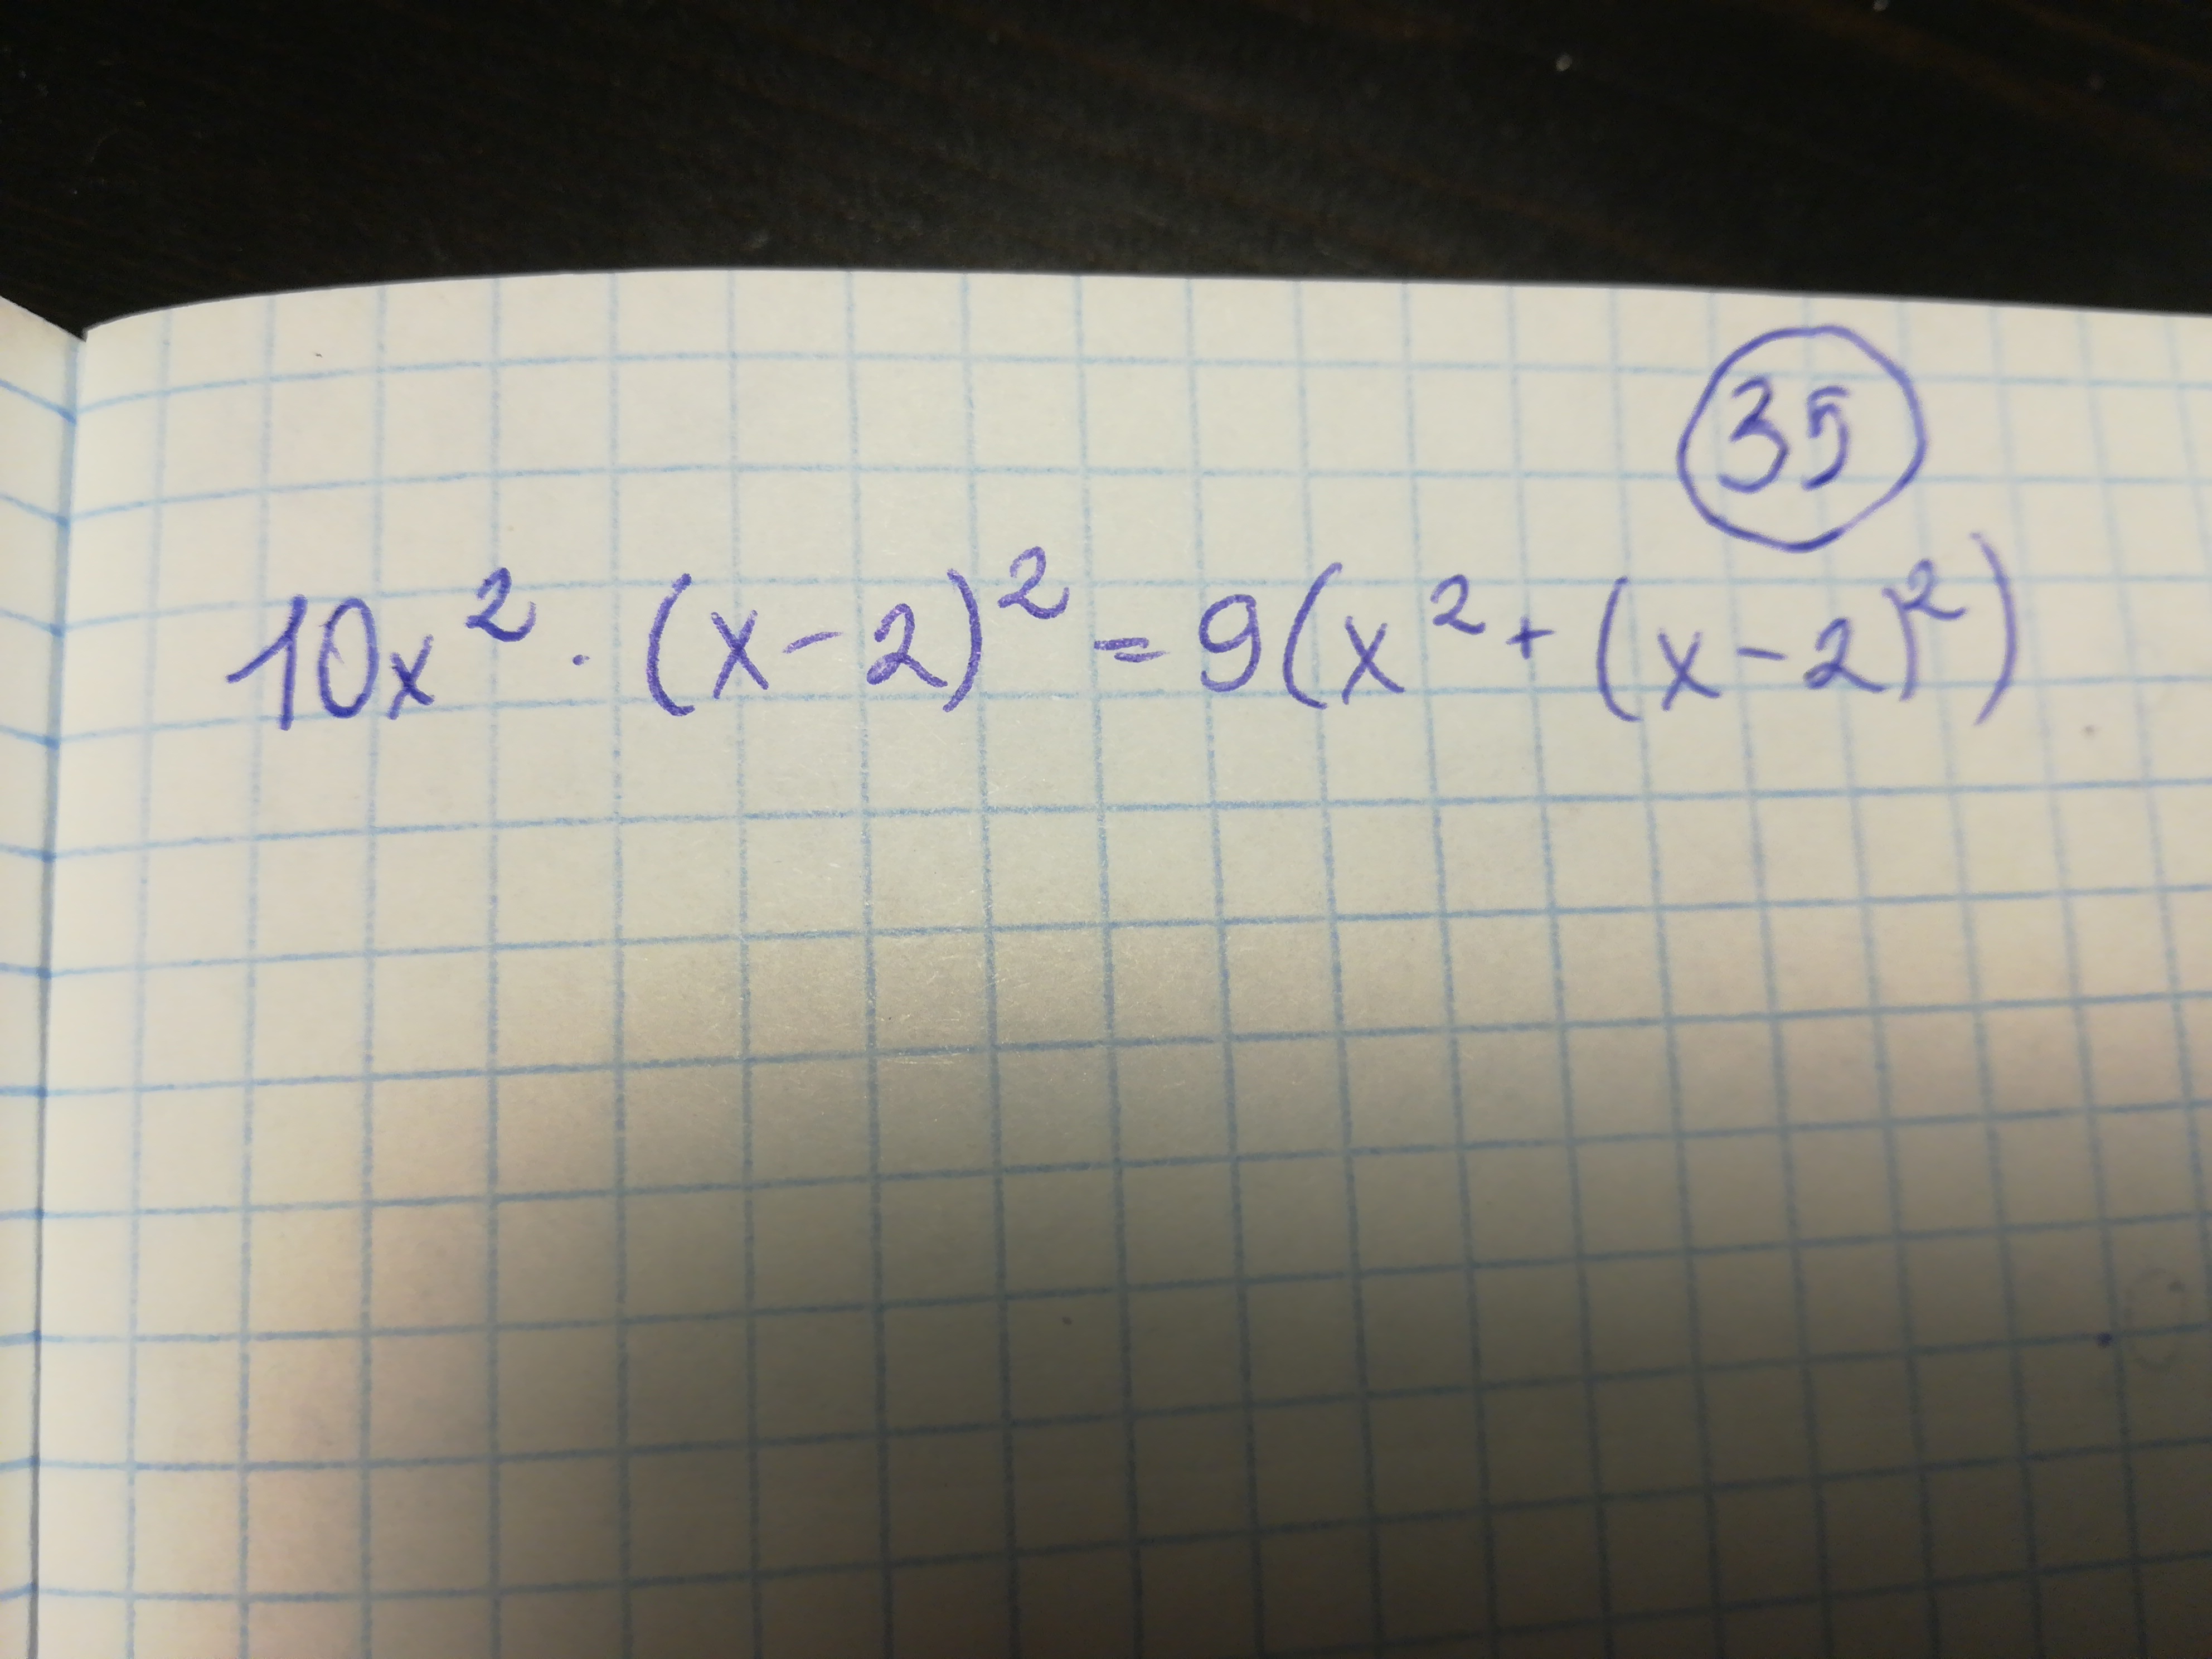 35
10x² · (x-2)² = 9(x² + (x-2)²)